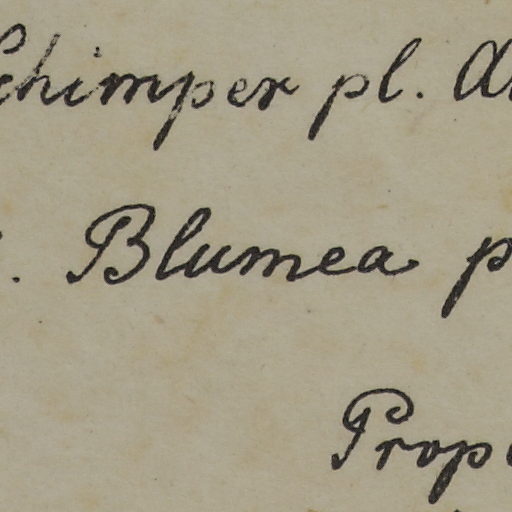 Schimper pl. A
Blumea p
Prop